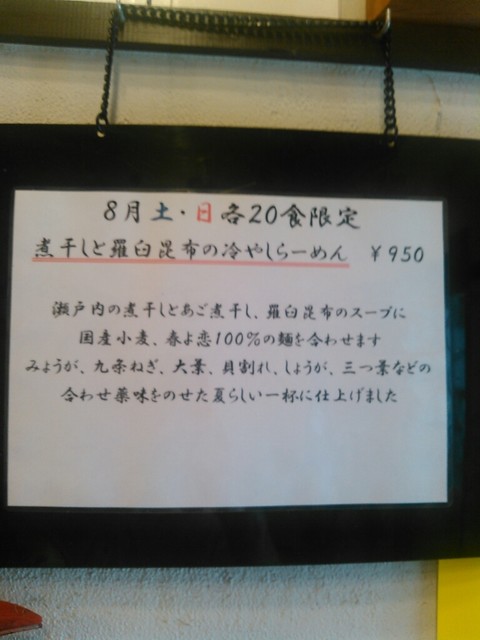 8月土・日各20食限定
煮干しと羅臼昆布の冷やしらーめん ￥950
瀬戸内の煮干しとあご煮干し、羅臼昆布のスープに
国産小麦、春よ恋100%の麺を合わせます
みょうが、九条ねぎ、大葉、貝割れ、しょうが、三つ葉などの
合わせ薬味をのせた夏らしい一杯に仕上げました